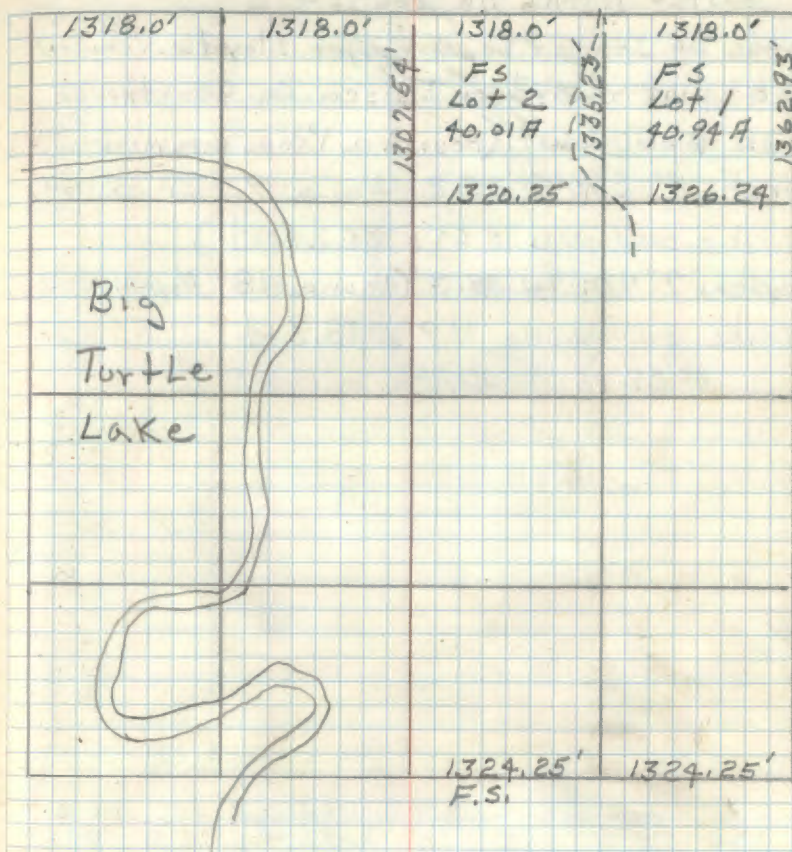 1318.0' 1318.0' 1318.0' 1318.0'
1307.54'
FS
Lot 2
40.01 A
1335.23'
FS
Lot 1
40.94 A
1362.93'
1320.25 1326.24
Big
Turtle
Lake
1324.25' 1324.25'
F.S.